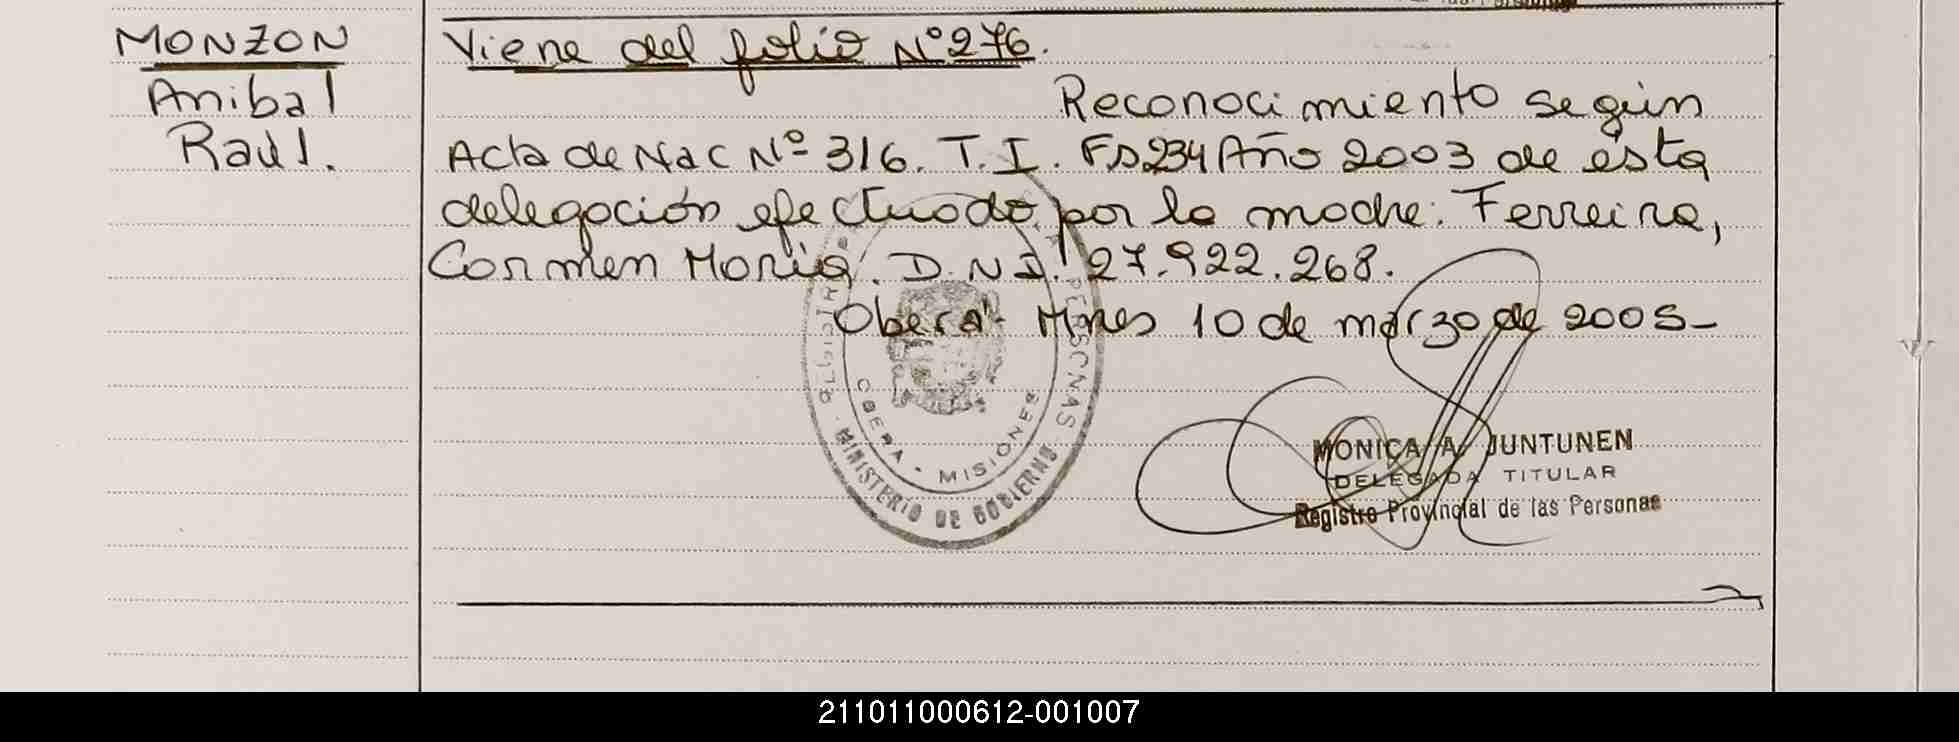 MONZON
Anibal
Raúl.
Viene del folio Nº 276.
Reconocimiento según
Acta de Nac Nº 316. T. I. Fº 234 Año 2003 de ésta
delegación efectuado por la madre: Ferreira,
Carmen María. D.N.I. 27.922.268.
Oberá- Mnes 10 de marzo de 2005-
OBERA - MISIONES
MINISTERIO DE GOBIERNO
MONICA A. JUNTUNEN
DELEGADA TITULAR
Registro Provincial de las Personas
211011000612-001007